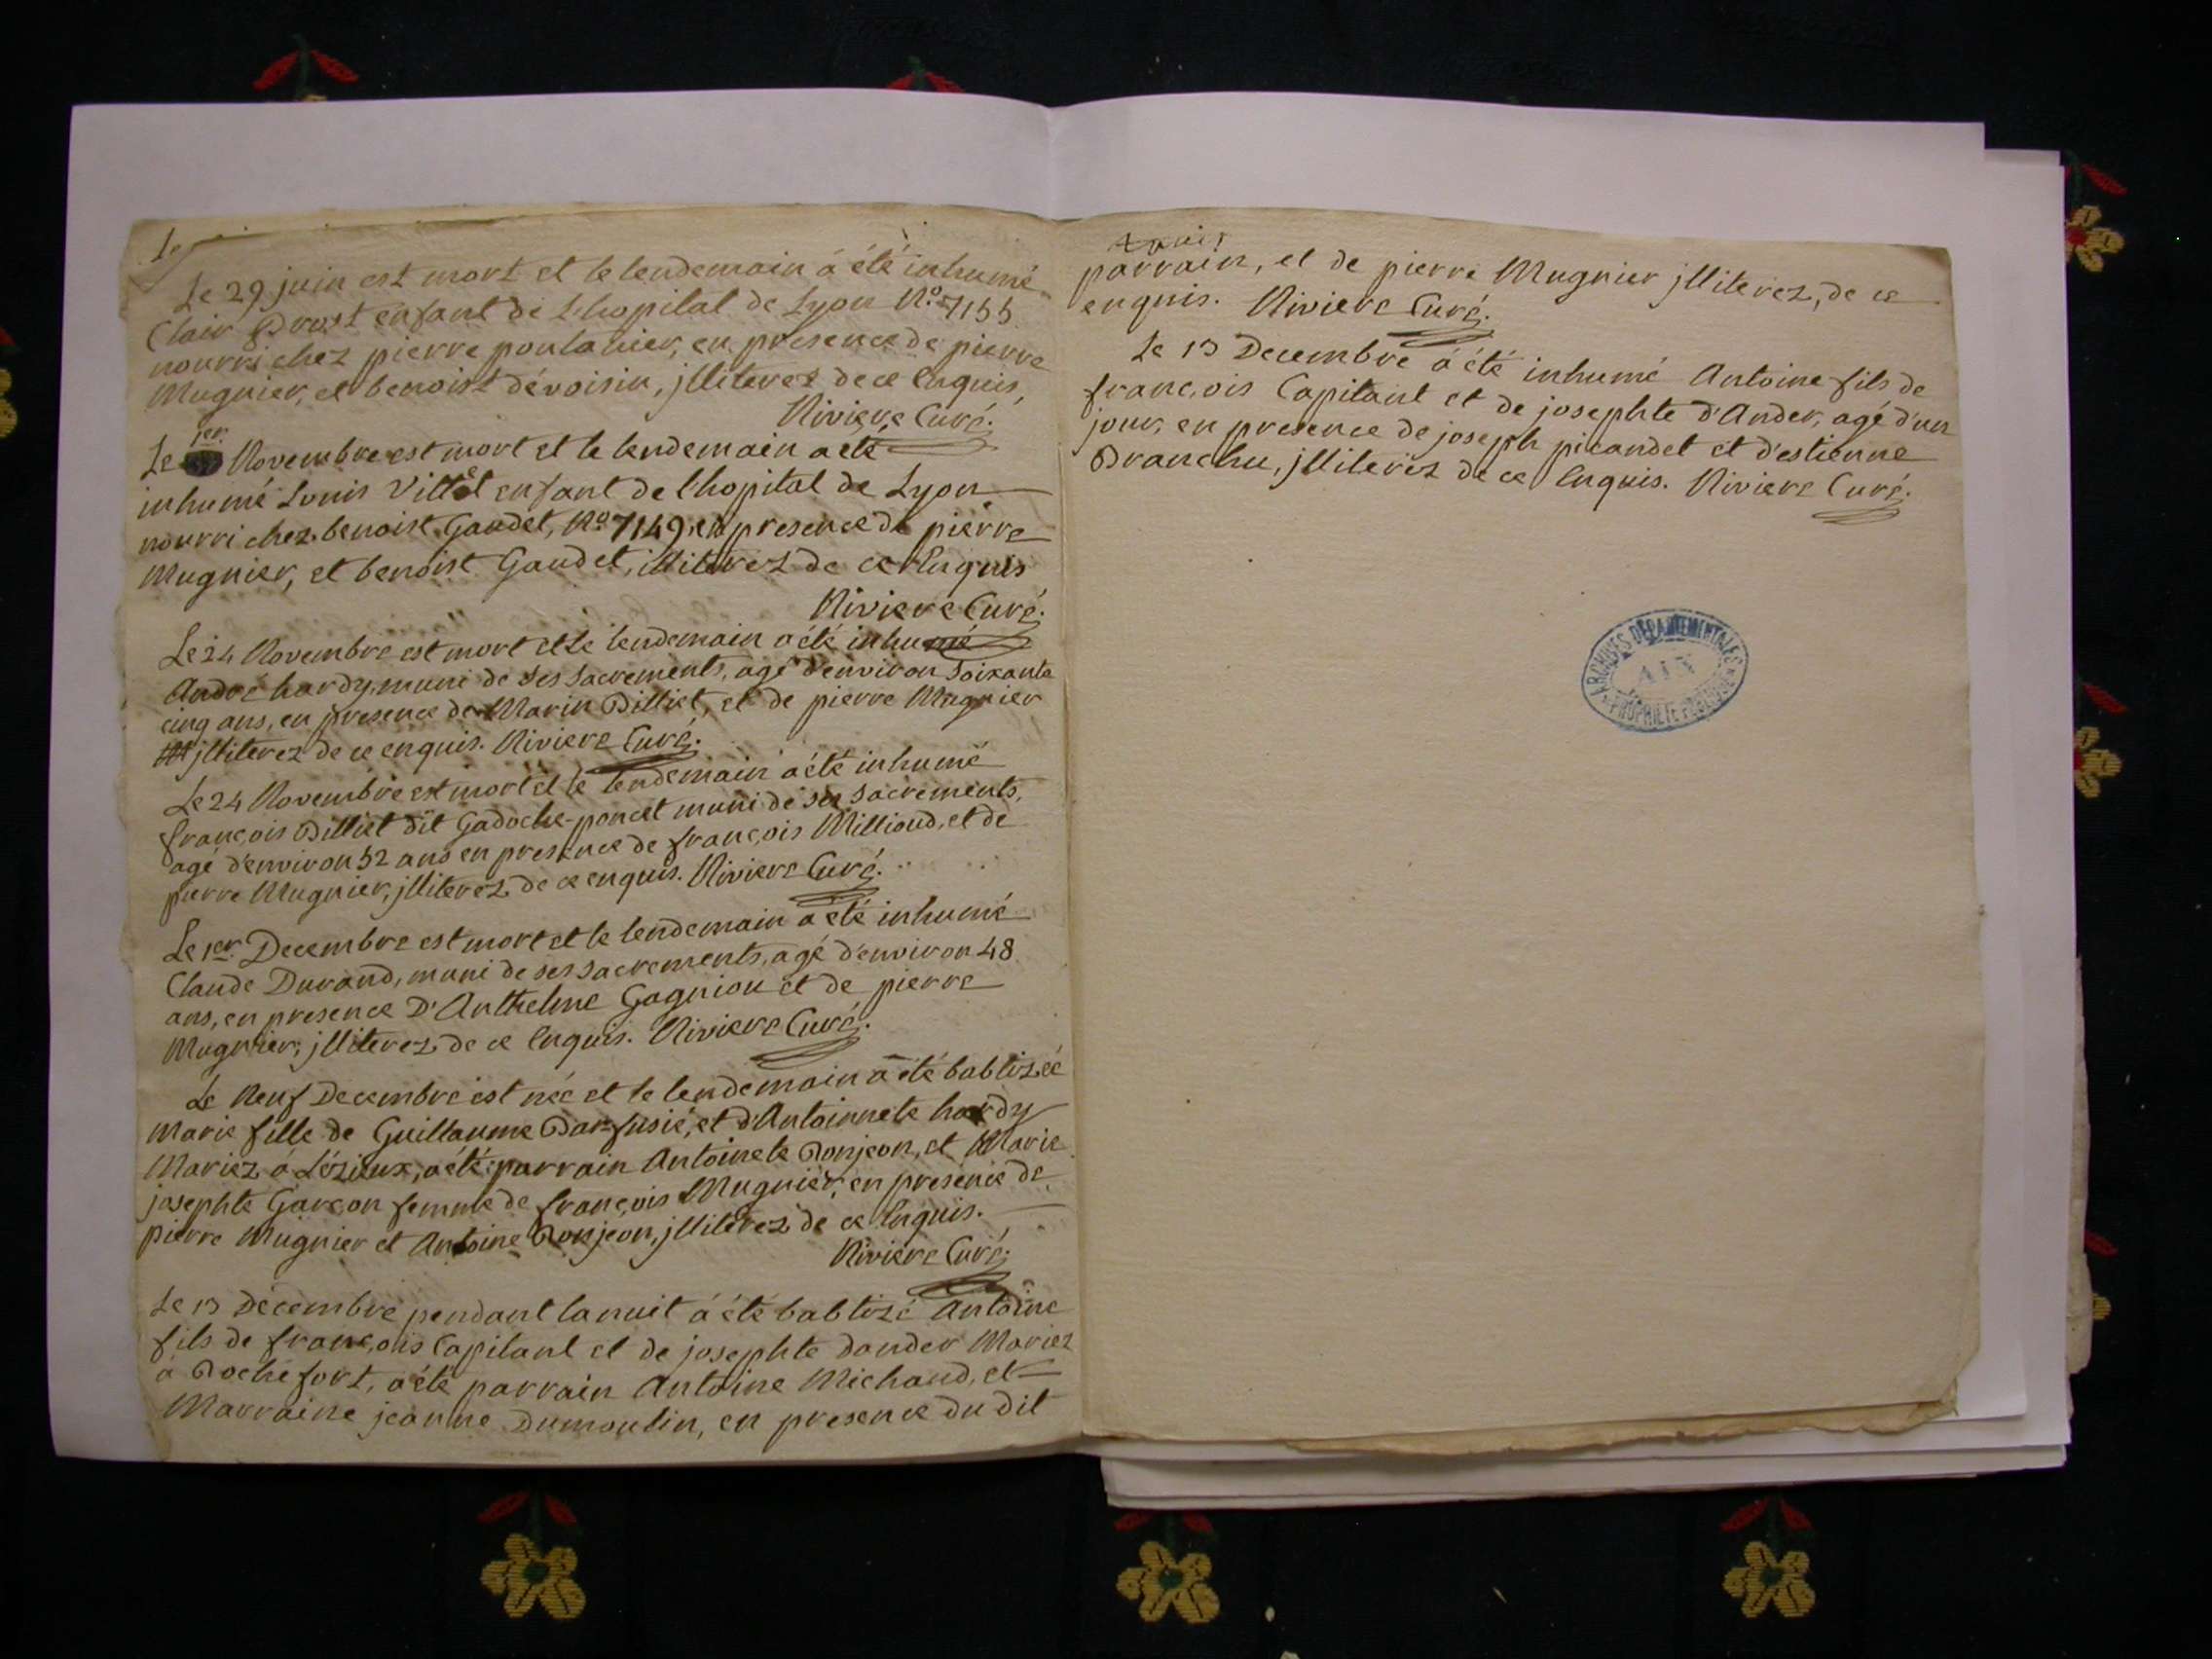 Le 29 juin est mort et le lendemain á été inhumé
Clair Brost enfant de l'hopital de Lyon N.º 7155
nourri chez pierre poulanier, en presence de pierre
Mugnier, et benoist dévoisin, jlliterez de ce Enquis,
Riviere Curé.
Le 1er. Novembre est mort et le lendemain a eté
inhumé Louis Villet enfant de lhopital de Lyon
nourri chez benoist Gaudet, N.º 7149, en presence de pierre
Mugnier, et benoist Gaudet, illiterez de ce Enquis
Riviere Curé.
Le 24 Novembre est mort et le lendemain a été inhumé
André hardy, muni de ses sacrements, agé d'environ soixante
cinq ans, en presence de Marin Billiet, et de pierre Mugnier
jlliterez de ce enquis. Riviere Curé.
Le 24 Novembre est mort et le lendemain a été inhumé
françois Billiet dit Gadoche-poncet muni de ses sacrements,
agé d'environ 52 ans en presence de françois Millioud, et de
pierre Mugnier, jlliterez de ce enquis. Riviere Curé.
Le 1er. Decembre est mort et le lendemain a eté inhumé
Claude Durand, muni de ses sacrements, agé d'environ 48
ans, en presence D'Anthelme Gagniou et de pierre
Mugnier, jlliterez de ce Enquis. Riviere Curé.
Le Neuf Decembre est née et le lendemain a été babtizée
Marie fille de Guillaume Barfusié, et d'Antoinnete hardy
Mariez á Lézieux, a été parrain Antoinete Bonjeon, et Marie
josephte Garçon femme de françois Mugnier, en presence de
pierre Mugnier et Antoine Bonjeon, jlliterez de ce Enquis.
Riviere Curé.
Le 13 décembre pendant la nuit á été babtizé Antoine
fils de françois Capitant et de josephte dander Mariez
á Rochefort, a été parrain Antoine Michaud, et
Marraine jeanne Dumoulin, en presence du dit
parrain, et de pierre Mugnier jlliterez, de ce
enquis. Riviere Curé.
Le 13 Decembre á été inhumé Antoine fils de
françois Capitant et de josephte d'Ander, agé d'un
jour, en presence de joseph picandet et d'estienne
Branchu, jlliterez de ce Enquis. Riviere Curé.
ARCHIVES DÉPARTEMENTALES
AIN
PROPRIÉTÉ PUBLIQUE